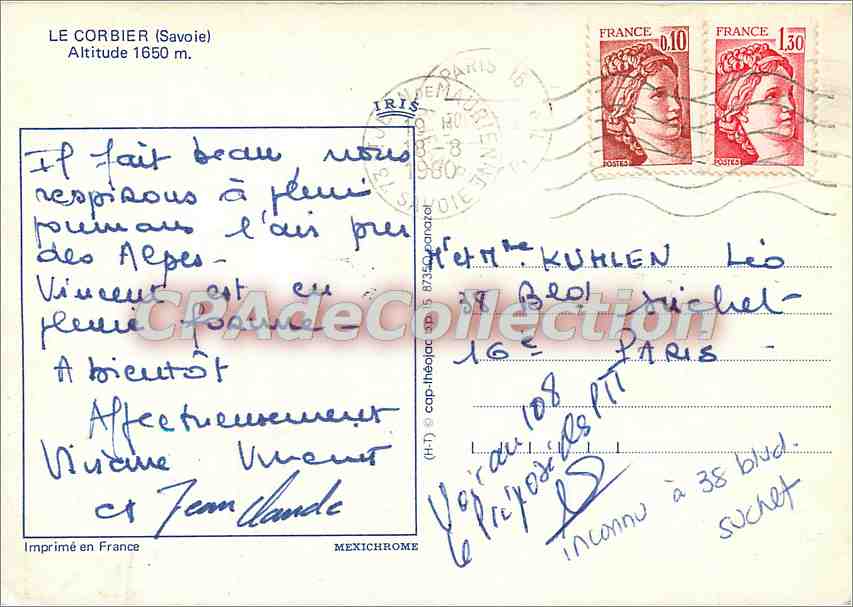 LE CORBIER (Savoie)
Altitude 1650 m.
IRIS
Il fait beau, nous
respirons à plein
poumons l'air pur
des Alpes -
Vincent est en
pleine forme -
A bientôt
Affectueusement
Viviane Vincent
et Jean Claude
Imprimé en France
MEXICHROME
FRANCE
0,10
POSTES
FRANCE
1,30
POSTES
PARIS 16
ST JEAN DE MAURIENNE
19 H
18-8
1980
73 SAVOIE
(H-T) © cap-théojac b.p. 15 87350 panazol
Mr et Mme KUHLEN Léo
38 Blod Suchet -
16e PARIS -
Voir au 108
Le Préposé des PTT
inconnu à 38 blvd.
suchet
CPAdeCollection